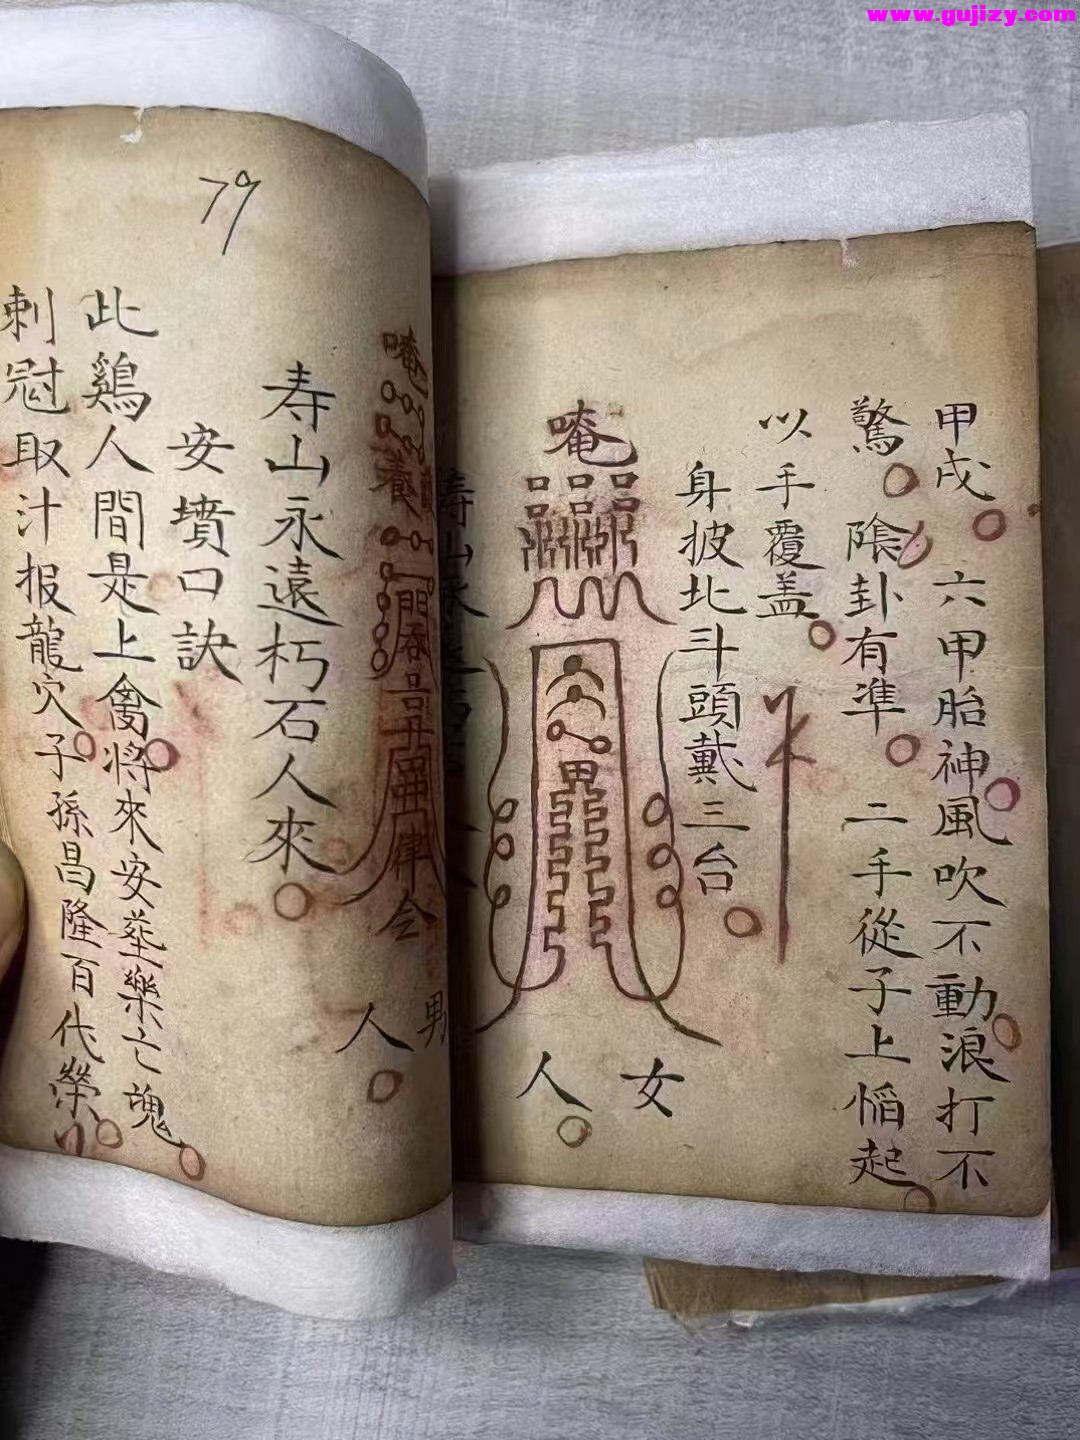 www.gujizy.com
甲戌 六甲胎神風吹不動浪打不
驚 陰卦有準 二手從子上慆起
以手覆盖
身披北斗頭戴三台
唵
女人
79
唵
養
律令
男人
寿山永遠朽石人來
安墳口訣
此鷄人間是上禽將來安葬樂亡魂
刺冠取汁报龍穴子孫昌隆百代榮